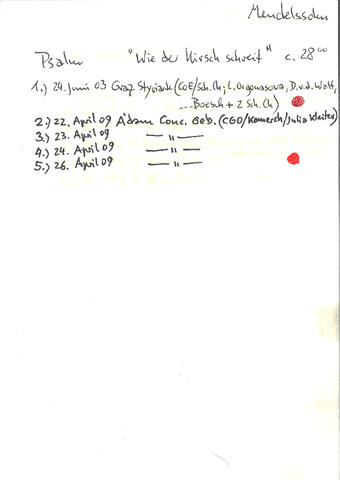 Mendelssohn
Psalm "Wie der Hirsch schreit" c. 28°°
1.) 24. Juni 03 Graz Styriarte (COE/Sch. Ch; L. Orgonasova, D. v. d. Walt,
...Boesch + 2 Sch. Ch)
2.) 22. April 09 A'dam Conc. Geb. (CGO/Kamerch/Julia Kleiter)
3.) 23. April 09 — " —
4.) 24. April 09 — " —
5.) 26. April 09 — " —